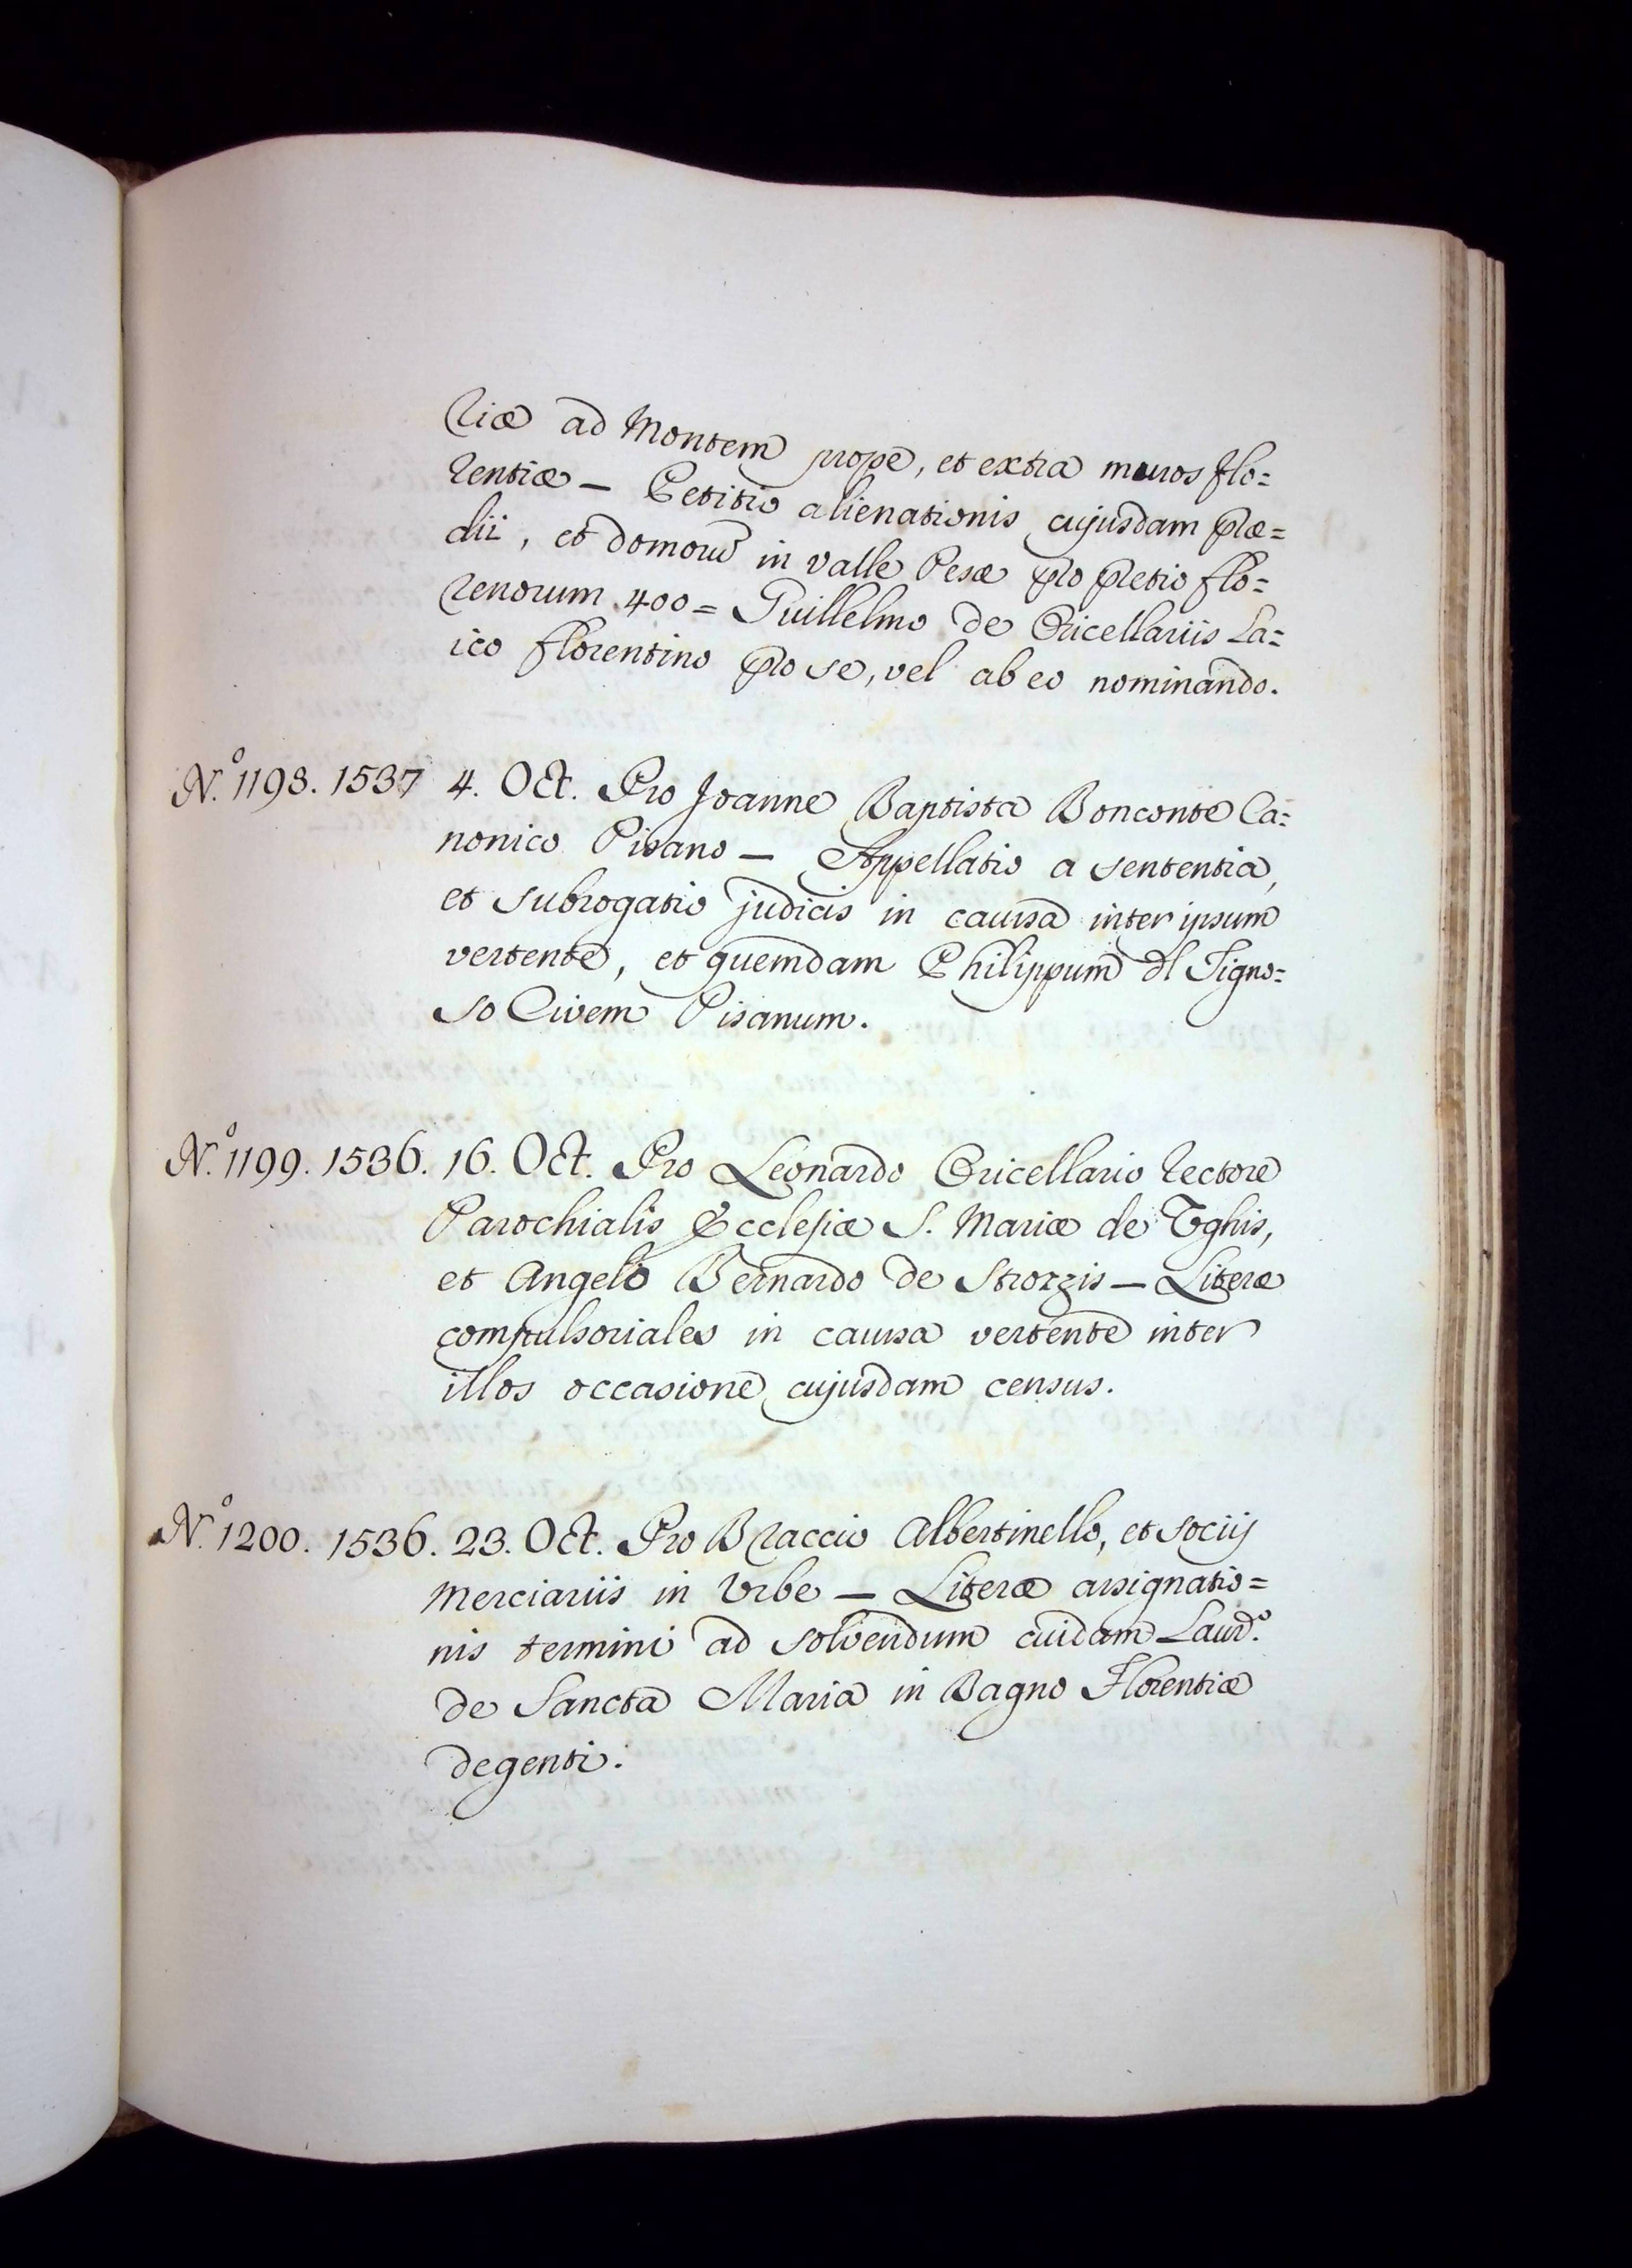 riæ ad Montem prope, et extra muros Flo=
rentiæ — Petitio alienationis cujusdam præ=
dii, et domorũ in valle Pesæ pro pretio flo=
renorum 400 = Guillelmo de Oricellariis La=
ico Florentino pro se, vel ab eo nominando.
N.º 1198. 1537 4. Oct. Pro Joanne Baptista Bonconte Ca=
nonico Pisano — Appellatio a sententia,
et subrogatio judicis in causa inter ipsum
vertente, et quemdam Philippum dl Tigno=
so Civem Pisanum.
N.º 1199. 1536. 16. Oct. Pro Leonardo Oricellario Rectore
Parochialis Ecclesiæ S. Mariæ de Ughis,
et Angelo Bernardo de Strozzis — Literæ
compulsoriales in causa vertente inter
illos occasione cujusdam census.
N.º 1200. 1536. 23. Oct. Pro Braccio Albertinello, et sociij
Merciariis in Urbe — Literæ assignatio=
nis termini ad solvendum cuidam Laud.º
de Sancta Maria in Bagno Florentiæ
degenti.